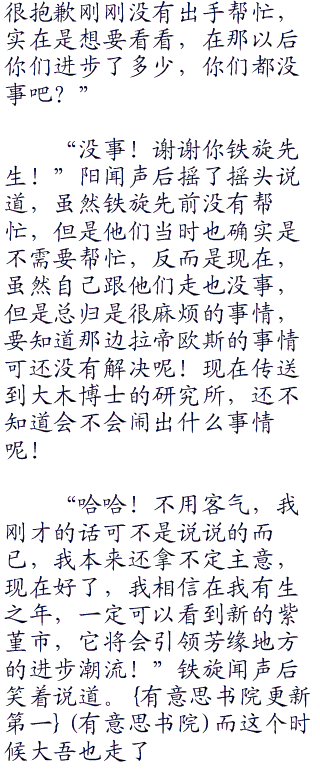 很抱歉刚刚没有出手帮忙，
实在是想要看看，在那以后
你们进步了多少，你们都没
事吧？”
“没事！谢谢你铁旋先
生！”阳闻声后摇了摇头说
道，虽然铁旋先前没有帮
忙，但是他们当时也确实是
不需要帮忙，反而是现在，
虽然自己跟他们走也没事，
但是总归是很麻烦的事情，
要知道那边拉帝欧斯的事情
可还没有解决呢！现在传送
到大木博士的研究所，还不
知道会不会闹出什么事情
呢！
“哈哈！不用客气，我
刚才的话可不是说说的而
已，我本来还拿不定主意，
现在好了，我相信在我有生
之年，一定可以看到新的紫
堇市，它将会引领芳缘地方
的进步潮流！”铁旋闻声后
笑着说道。{有意思书院更新
第一}(有意思书院)而这个时
候大吾也走了